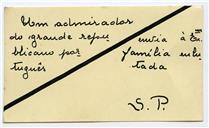 Um admirador
do grande repu
blicano por
tuguês
envia à Ex.
família enlu
tada
S. P.